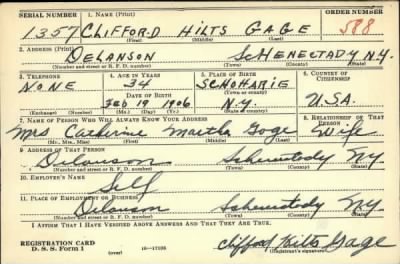 SERIAL NUMBER 1. NAME (Print) ORDER NUMBER
1357 CLIFFORD HILTS GAGE 588
(First) (Middle) (Last)
2. ADDRESS (Print)
DELANSON SCHENECTADY N.Y.
(Number and street or R. F. D. number) (Town) (County) (State)
3. TELEPHONE 4. AGE IN YEARS 5. PLACE OF BIRTH 6. COUNTRY OF CITIZENSHIP
NONE 34 SCHOHARIE
DATE OF BIRTH (Town or county)
FEB 19 1906 N.Y. U.S.A.
(Exchange) (Number) (Mo.) (Day) (Yr.) (State or country)
7. NAME OF PERSON WHO WILL ALWAYS KNOW YOUR ADDRESS 8. RELATIONSHIP OF THAT PERSON
Mrs Catherine Martha Gage Wife
(Mr., Mrs., Miss) (First) (Middle) (Last)
9. ADDRESS OF THAT PERSON
Delanson Schenectady NY.
(Number and street or R. F. D. number) (Town) (County) (State)
10. EMPLOYER'S NAME
Self
11. PLACE OF EMPLOYMENT OR BUSINESS
Delanson Schenectady NY.
(Number and street or R. F. D. number) (Town) (County) (State)
I AFFIRM THAT I HAVE VERIFIED ABOVE ANSWERS AND THAT THEY ARE TRUE.
REGISTRATION CARD
D. S. S. Form 1 (over) Clifford Hilts Gage
(Registrant's signature)